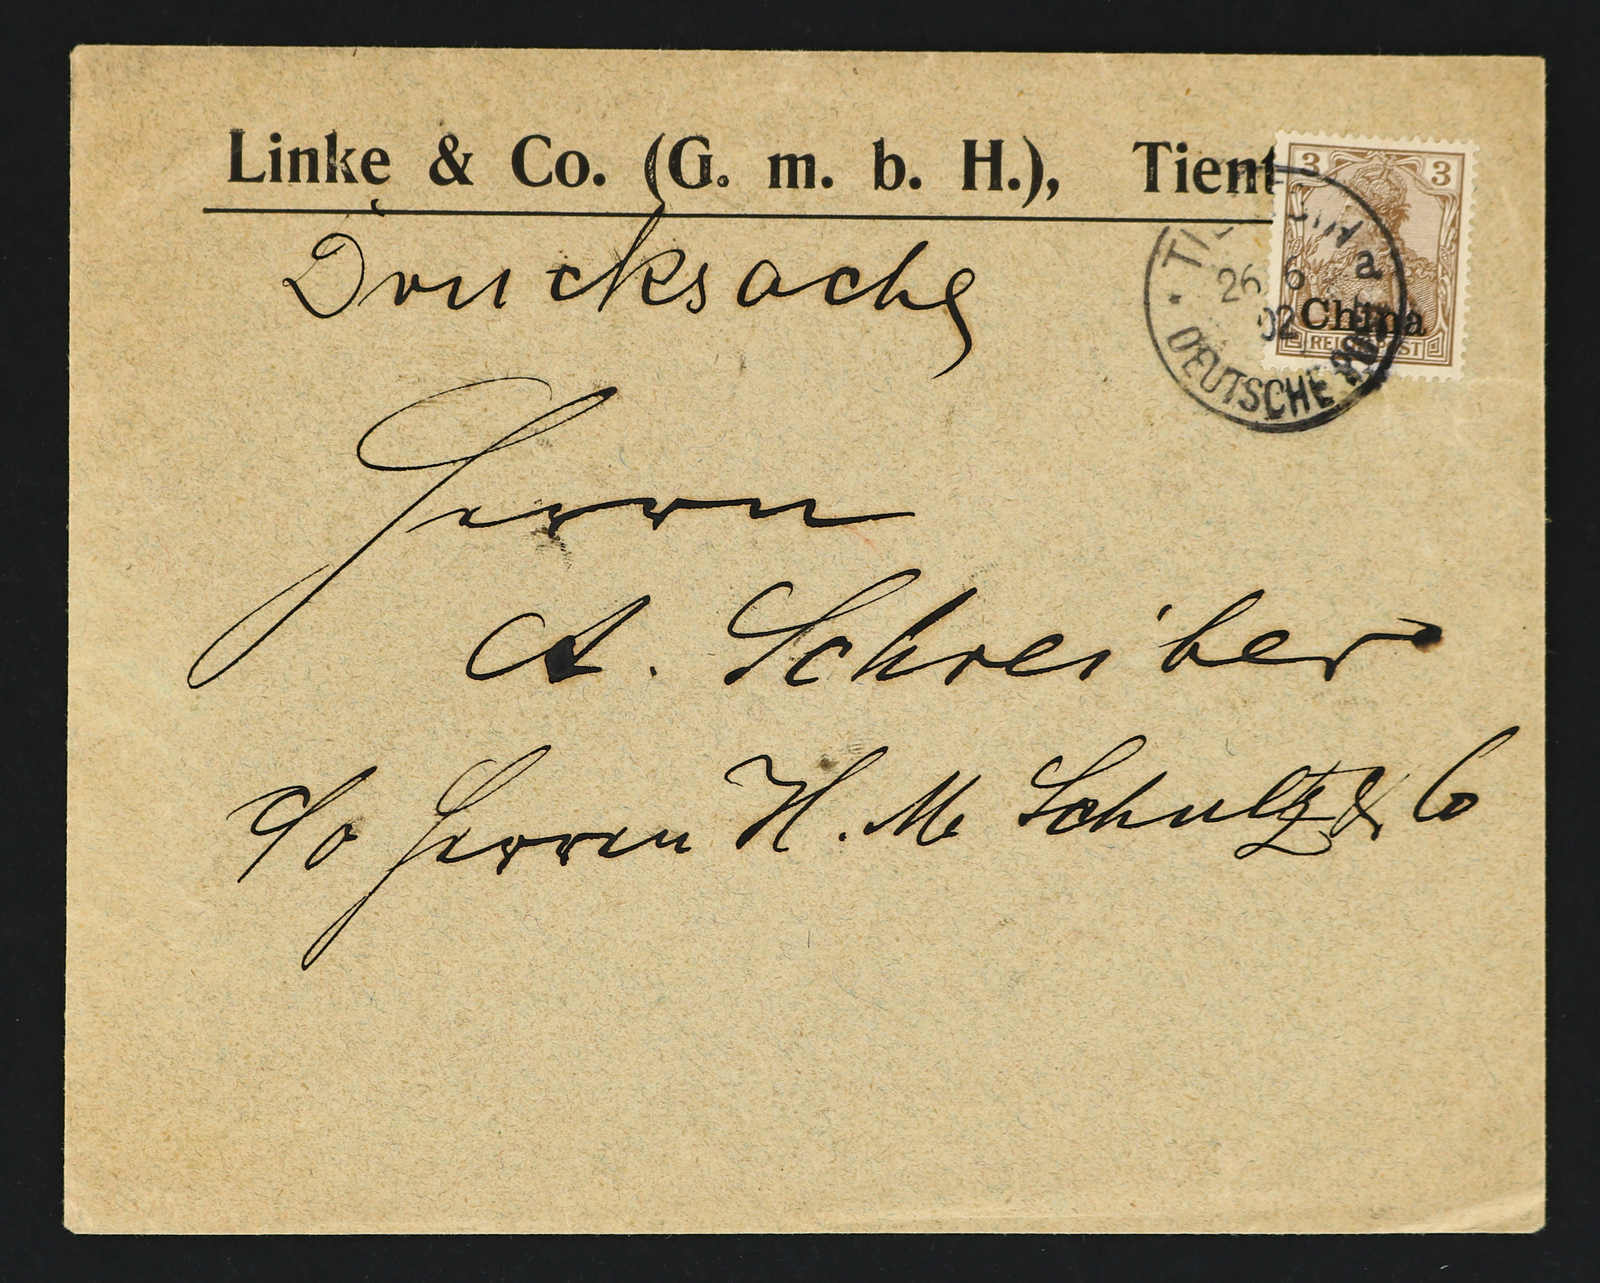 Linke & Co. (G. m. b. H.), Tient
3 3
China
REICHSPOST
26 6 a
02
DEUTSCHE POST
Drucksache
Herrn
A. Schreiber
c/o Herren H. M. Schultz & Co